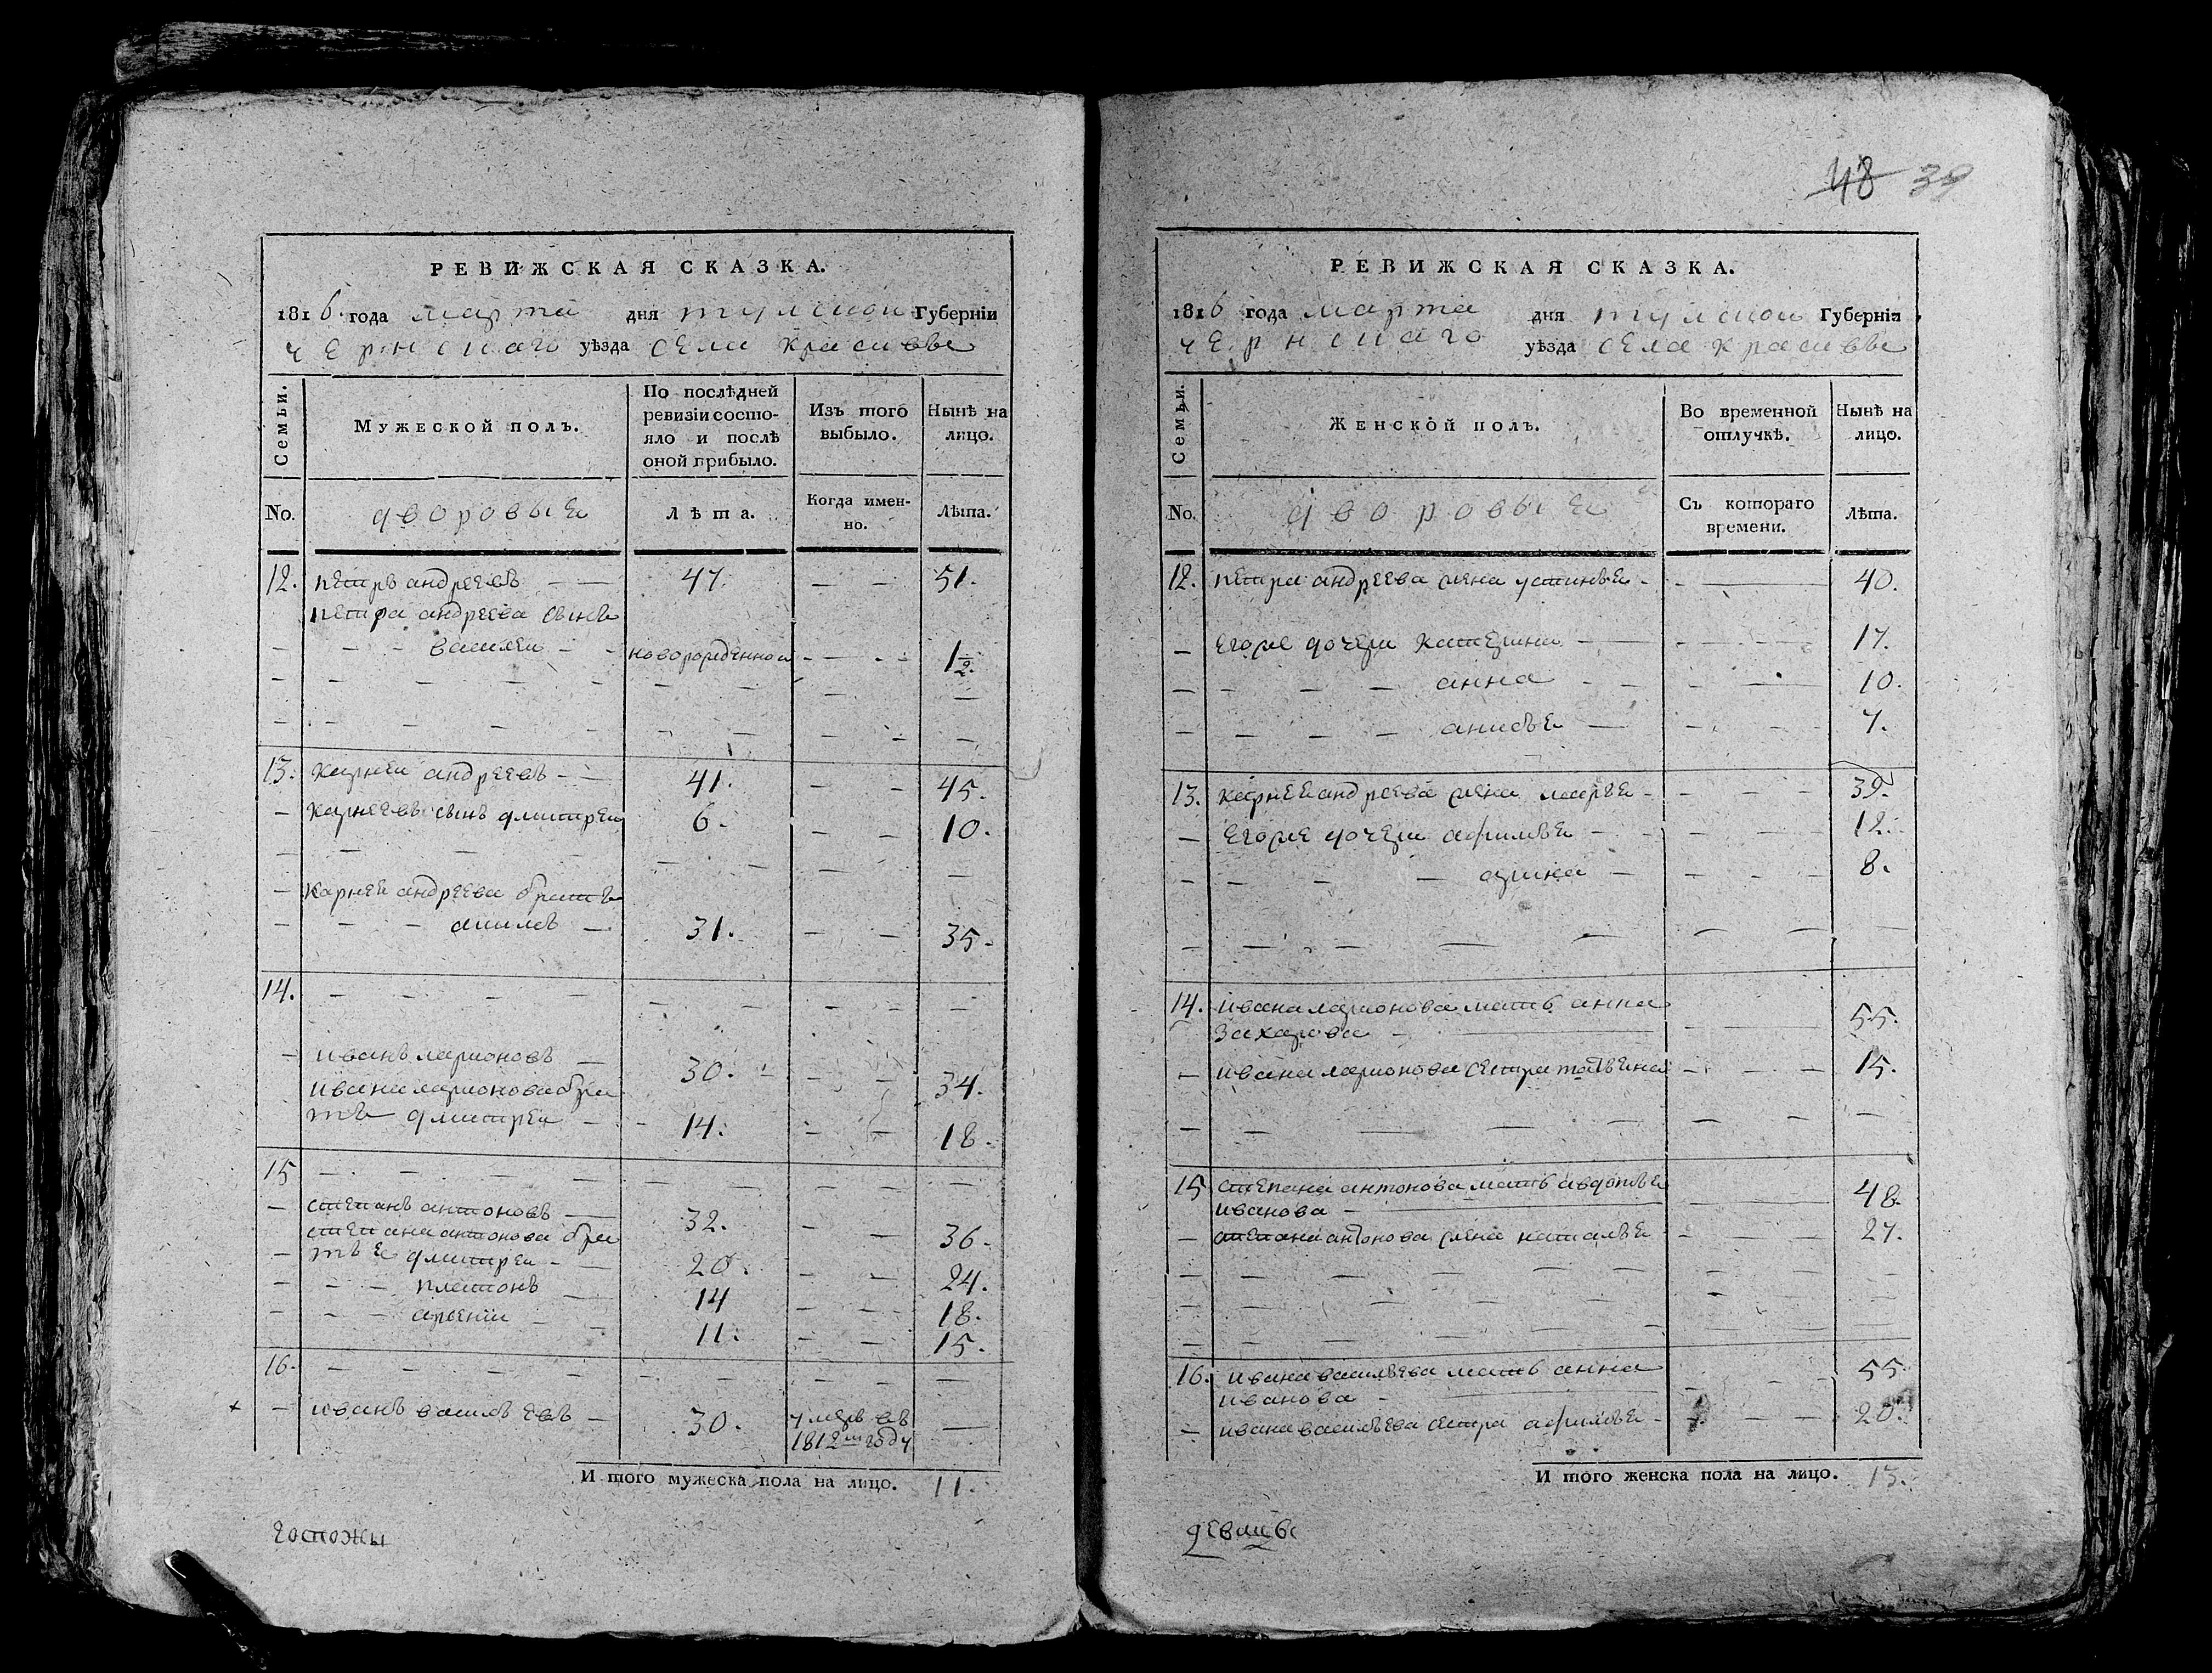 48 39
РЕВИЖСКАЯ СКАЗКА.
1816 года марта дня тулской Губерніи
чернскаго уѣзда села красивье
Семьи. Мужеской полъ. По послѣдней ревизіи состояло и послѣ оной прибыло. Изъ того выбыло. Нынѣ на лицо.
No. дворовыи Лѣта. Когда именно. Лѣта.
12. петръ андреевъ — — 47. — — 51.
петра андреева сынъ
— — — василеи — — новорожденнои — — 1 1/2.
13. карнеи андреевъ — — 41. — — 45.
— карнеевъ сынъ дмитреи 6. — — 10.
— карнея андреева братъ
— — — 31. — — 35.
14. — — — —
— иванъ ларионовъ — 30. — — 34.
ивана ларионова бра
тъ дмитреи — 14. — — 18.
15 — — — —
— степанъ антоновъ — 32. — — 36.
степана антонова бра
— тья дмитреи — 20. — — 24.
— — — платонъ — 14 — — 18.
— — — арсении — 11. — — 15.
16. — — — —
+ — иванъ васильевъ — 30. умеръ въ —
1812м году
И того мужеска пола на лицо. 11.
госпожи
РЕВИЖСКАЯ СКАЗКА.
1816 года марта дня тулской Губерніи
чернскаго уѣзда села красивье
Семьи. Женской полъ. Во временной отлучкѣ. Нынѣ на лицо.
No. дворовыи Съ котораго времени. Лѣта.
12. петра андреева жена устинья — — 40.
— егоже дочери катерина — — 17.
— — — — анна — — 10.
— — — — анисья — — 7.
13. карнея андреева жена марья — — 39.
— егоже дочери афимья — — 12.
— — — — арина — — 8.
14. ивана ларионова мать анна
захарова — — 55.
— ивана ларионова сестра татьяна — — 15.
15 степана антонова мать авдотья
иванова — — 48.
— степана антонова жена наталья — — 27.
16. ивана васильева мать анна
иванова — — 55
— ивана васильева сестра афимья — — 20.
И того женска пола на лицо. 13.
девицы